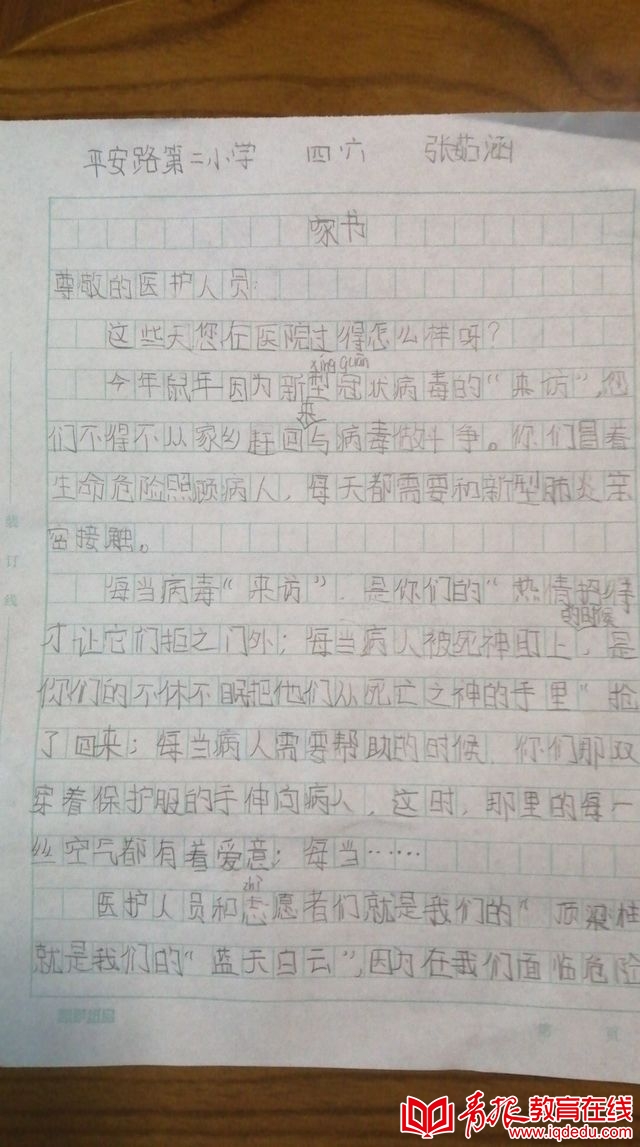 平安路第二小学 四.六 张茹涵
家书
尊敬的医护人员:
这些天您在医院过得怎么样呀?
xíng guān
今年鼠年因为新型冠状病毒的“来访”,您
来
们不得不从家乡赶回与病毒做斗争。你们冒着
生命危险照顾病人,每天都需要和新型肺炎亲
密接触。
每当病毒“来访”,是你们的“热情招待
的时候
才让它们拒之门外;每当病人被死神盯上,是
你们的不休不眠把他们从死亡之神的手里“抢
了回来;每当病人需要帮助的时候,你们那双
穿着保护服的手伸向病人,这时,那里的每一
丝空气都有着爱意;每当……
zhì
医护人员和志愿者们就是我们的“顶梁柱
就是我们的“蓝天白云”,因为在我们面临危险
装订线
第 页
青报教育在线
www.iqdedu.com